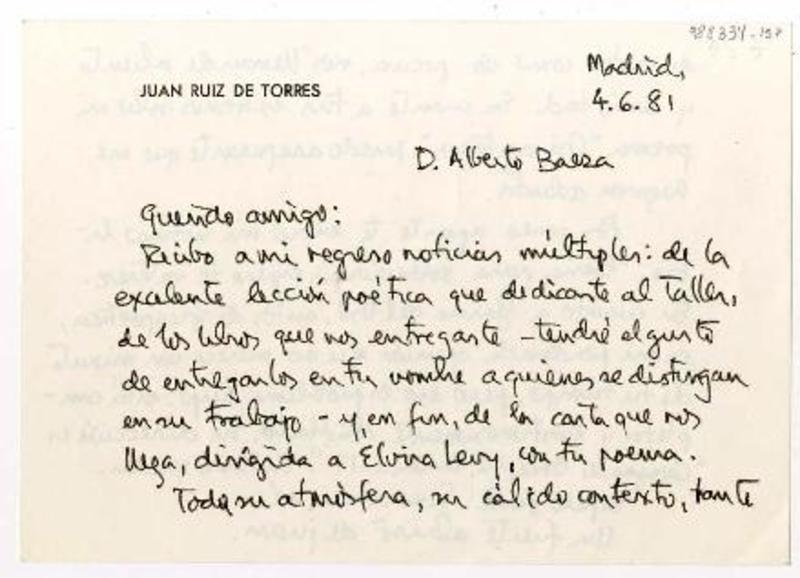 988334-157
Madrid,
JUAN RUIZ DE TORRES
4.6.81
D. Alberto Baeza
Querido amigo:
Recibo a mi regreso noticias múltiples: de la
excelente lección poética que dedicaste al Taller,
de los libros que nos entregaste - tendré el gusto
de entregarlos en tu nombre a quienes se distingan
en su trabajo - y, en fin, de la carta que nos
llega, dirigida a Elvira Levy, con tu poema.
Toda su atmósfera, su cálido contexto, tante